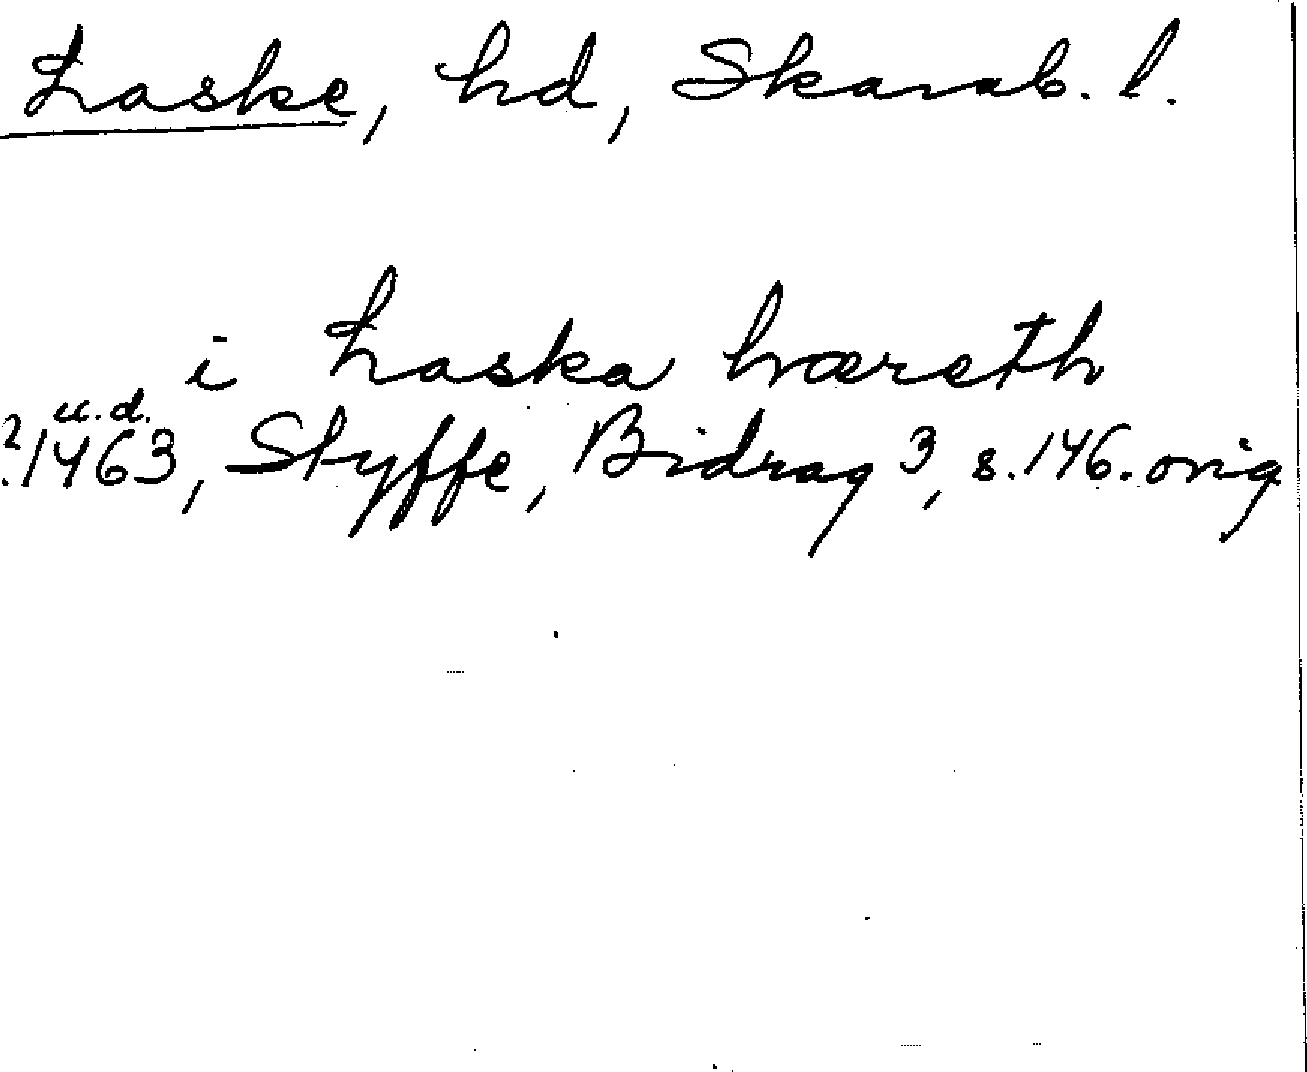 Laske, hd, Skarab. l.
i Laska hræreth
u.d.
1463, Styffe, Bidrag 3, s. 146. orig